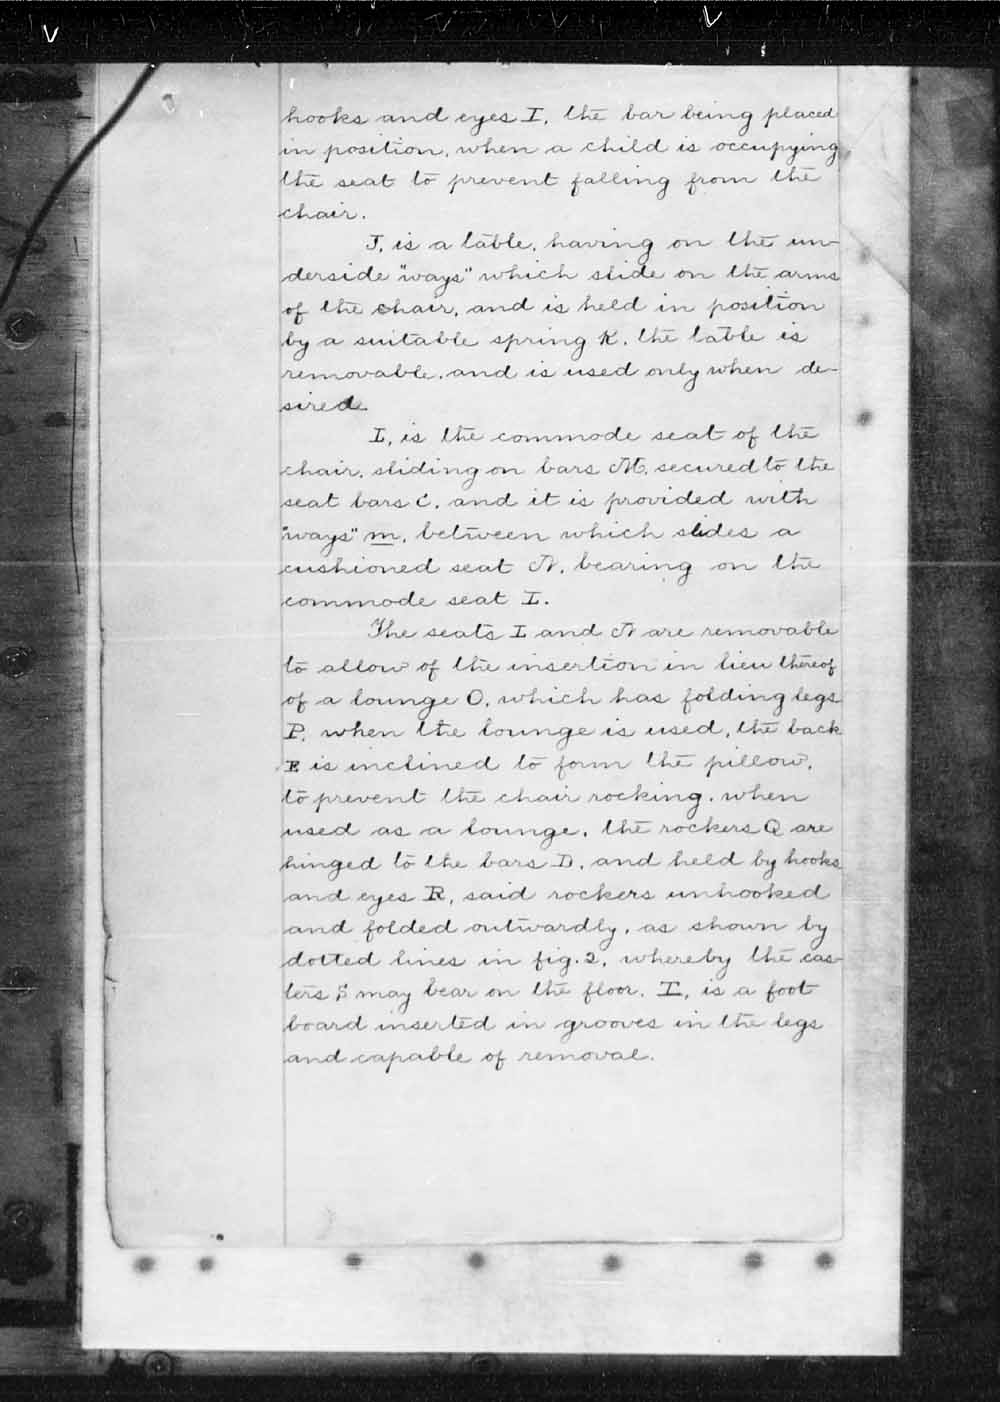 hooks and eyes I, the bar being placed
in position, when a child is occupying
the seat to prevent falling from the
chair.
J, is a table, having on the un-
derside "ways" which slide on the arms
of the chair, and is held in position
by a suitable spring K. the table is
removable, and is used only when de-
sired.
L, is the commode seat of the
chair, sliding on bars M, secured to the
seat bars C, and it is provided with
"ways" m, between which slides a
cushioned seat N, bearing on the
commode seat L.
The seats L and N are removable
to allow of the insertion in lieu thereof
of a lounge O, which has folding legs
P, when the lounge is used, the back
E is inclined to form the pillow,
to prevent the chair rocking, when
used as a lounge, the rockers Q are
hinged to the bars D, and held by hooks
and eyes R, said rockers unhooked
and folded outwardly, as shown by
dotted lines in fig. 2, whereby the cas-
ters S may bear on the floor. T, is a foot
board inserted in grooves in the legs
and capable of removal.